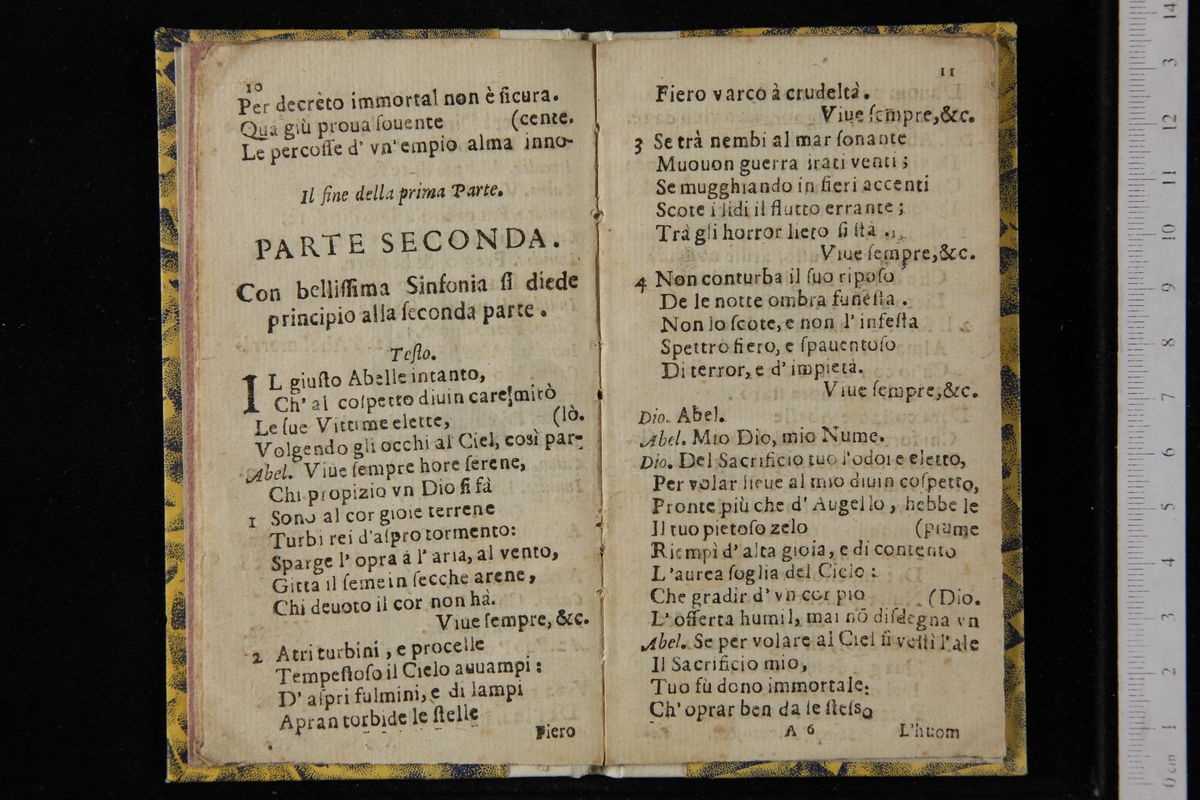 10
Per decrèto immortal non è ſicura.
Quà giù proua ſouente (cente.
Le percoſſe d' vn' empio alma inno-
Il fine della prima Parte.
PARTE SECONDA.
Con belliſſima Sinfonia ſi diede
principio alla ſeconda parte.
Teſto.
IL giuſto Abelle intanto,
Ch' al coſpetto diuin care mirò
Le ſue Vittime elette, (lò.
Volgendo gli occhi al Ciel, così par-
Abel. Viue ſempre hore ſerene,
Chi propizio vn Dio ſi fà
1 Sono al cor gioie terrene
Turbi rei d'aſpro tormento:
Sparge l' opra à l' aria, al vento,
Gitta il ſeme in ſecche arene,
Chi deuoto il cor non hà.
Viue ſempre, &c.
2 Atri turbini, e procelle
Tempeſtoſo il Cielo auuampi:
D' aſpri fulmini, e di lampi
Apran torbide le ſtelle
Fiero
11
Fiero varco à crudeltà.
Viue ſempre, &c.
3 Se trà nembi al mar ſonante
Muouon guerra irati venti;
Se mugghiando in fieri accenti
Scote i lidi il flutto errante;
Trà gli horror lieto ſi ſtà.
Viue ſempre, &c.
4 Non conturba il ſuo ripoſo
De le notte ombra funeſta.
Non lo ſcote, e non l' infeſta
Spettro fiero, e ſpauentoſo
Di terror, e d' impietà.
Viue ſempre, &c.
Dio. Abel.
Abel. Mio Dio, mio Nume.
Dio. Del Sacrificio tuo l'odore eletto,
Per volar lieue al mio diuin coſpetto,
Pronte più che d' Augello, hebbe le
Il tuo pietoſo zelo (piume
Riempì d' alta gioia, e di contento
L'aurea ſoglia del Cielo:
Che gradir d' vn cor pio (Dio.
L' offerta humil, mai nō diſdegna vn
Abel. Se per volare al Ciel ſi veſtì l'ale
Il Sacrificio mio,
Tuo fù dono immortale:
Ch' oprar ben da ſe ſteſso
A 6 L'huom
0 cm 1 2 3 4 5 6 7 8 9 10 11 12 3 14